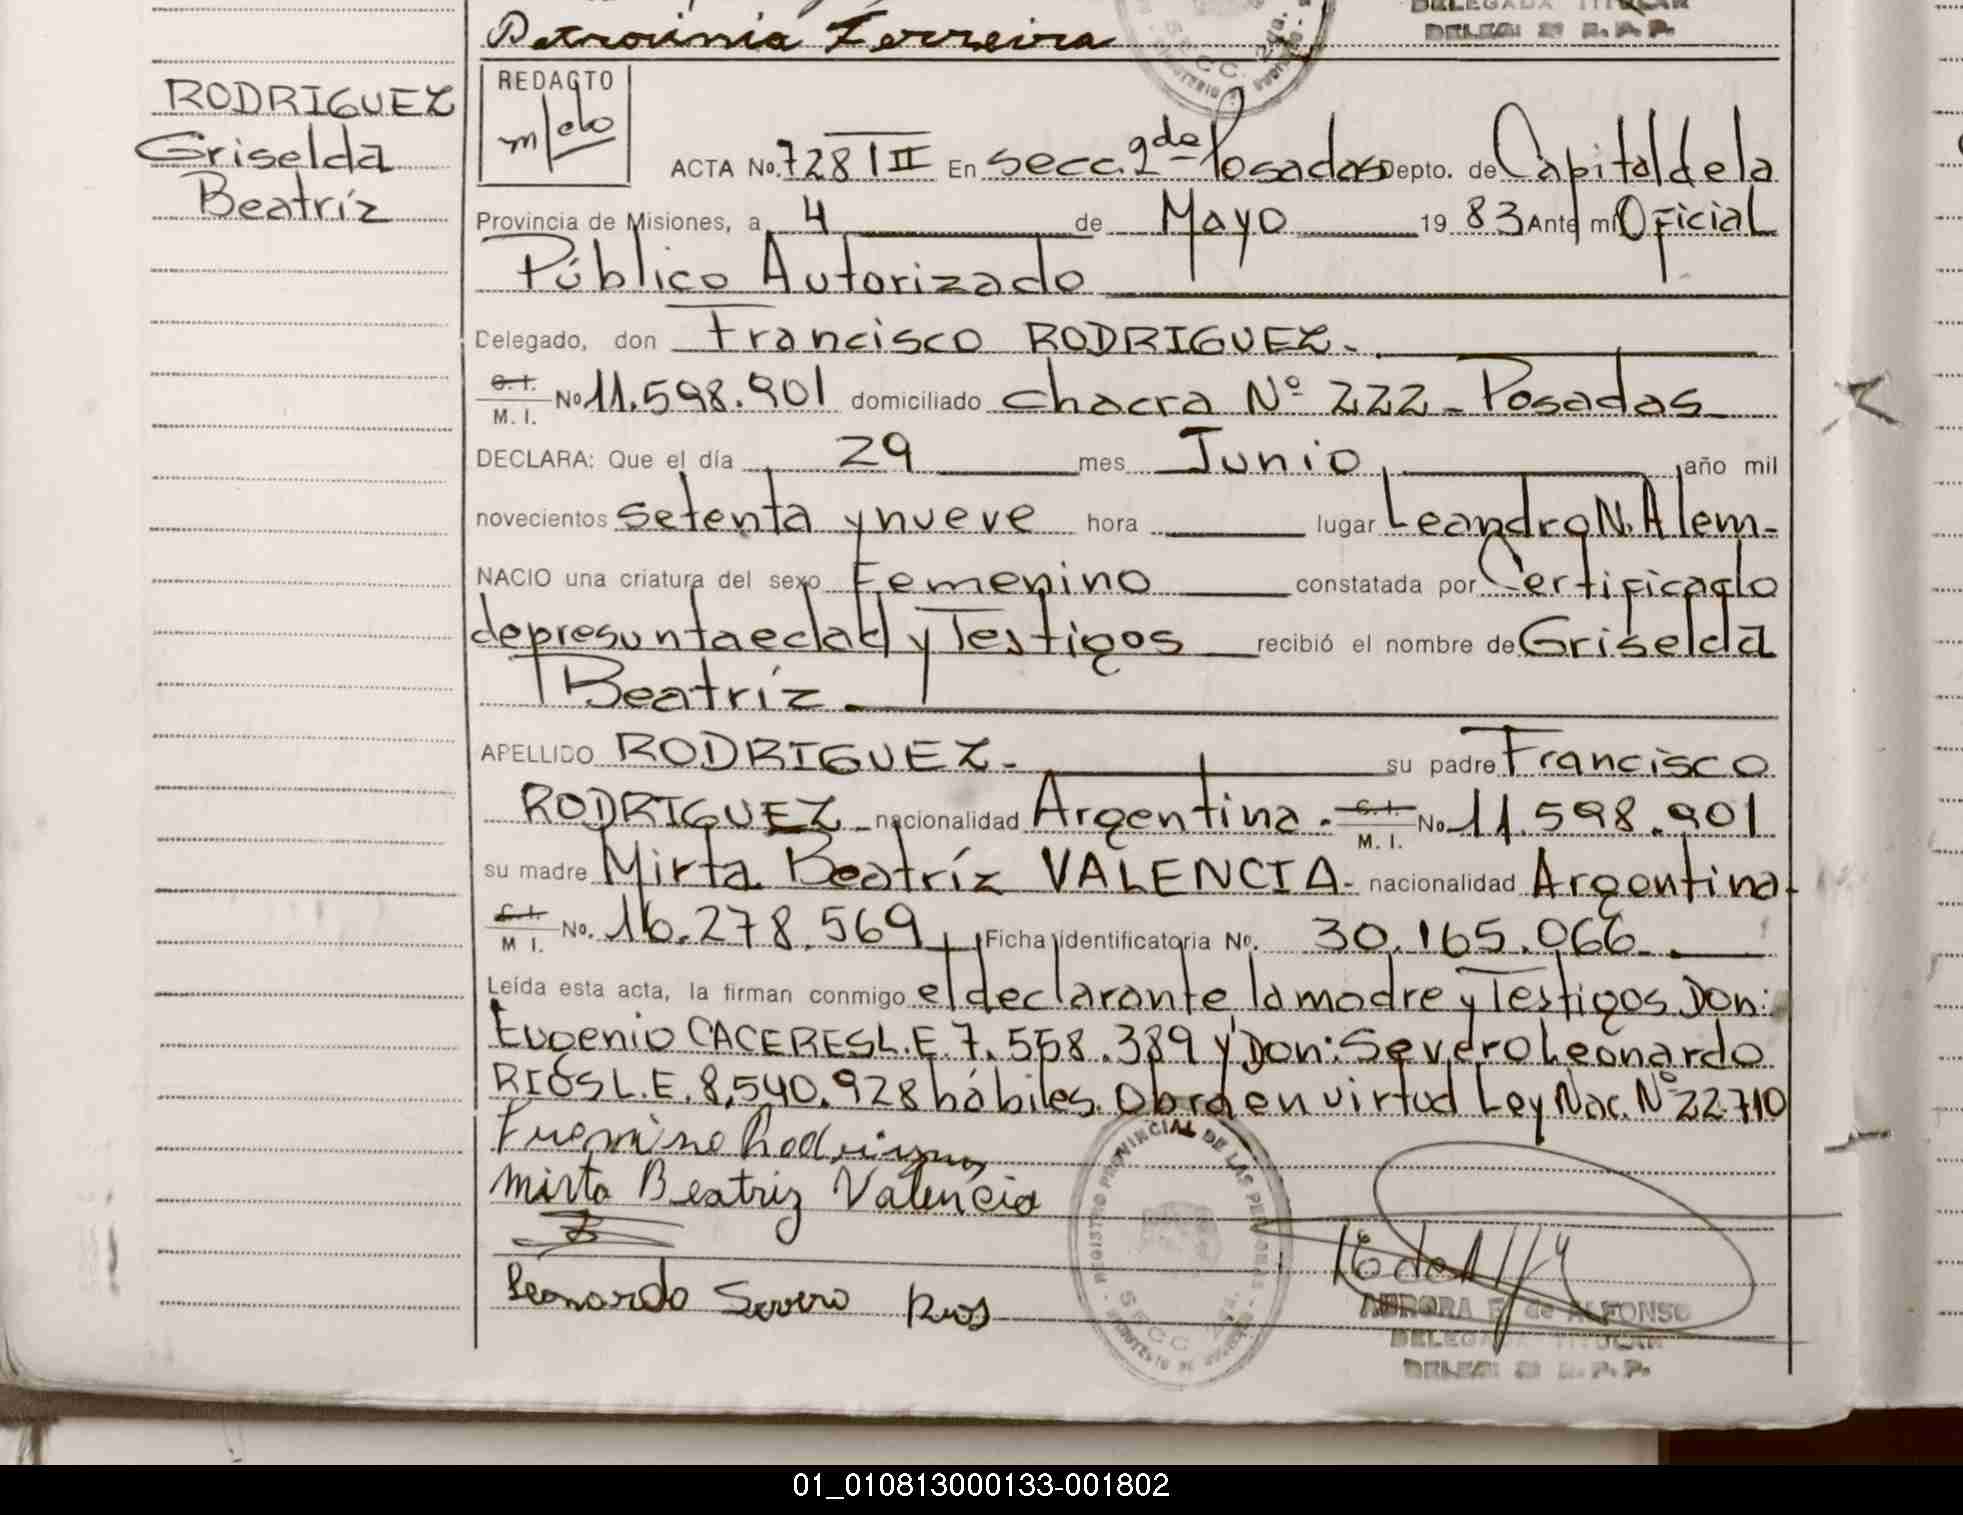 Petronina Ferreira
DELEGADA TITULAR
RODRIGUEZ
Griselda
Beatríz
REDACTO
ACTA No. 728 III En secc. 2da Posadas Depto. de Capital de la
Provincia de Misiones, a 4 de Mayo 1983 Ante mi Oficial
Público Autorizado
Delegado, don Francisco RODRIGUEZ.-
C. I.
M. I. No 11.598.901 domiciliado chacra Nº 222- Posadas
DECLARA: Que el día 29 mes Junio, año mil
novecientos setenta y nueve hora lugar Leandro N. Alem-
NACIO una criatura del sexo Femenino constatada por Certificado
de presunta edad y Testigos recibió el nombre de Griselda
Beatríz.
APELLIDO RODRIGUEZ.- su padre Francisco
RODRIGUEZ- nacionalidad Argentina.- C. I. M. I. No 11.598.901
su madre Mirta Beatríz VALENCIA- nacionalidad Argentina-
C. I. M I. No. 16.278.569 Ficha identificatoria No. 30.165.066.
Leída esta acta, la firman conmigo el declarante la madre y Testigos Don:
Eugenio CACERES L.E. 7.558.389 y Don: Severo Leonardo
RIOS L.E. 8.540.928 hábiles. Obra en virtud Ley Nac. Nº 22.710
Mirta Beatriz Valencia
Leonardo Severo Rios
REGISTRO PROVINCIAL DE LAS PERSONAS
SECC. 2da.
AURORA E. de ALFONSO
DELEGADA TITULAR
01_010813000133-001802